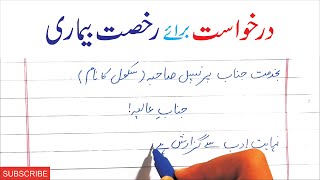 درخواست برائے رخصت بیماری
بخدمت جناب پرنسپل صاحبہ (سکول کا نام)
جنابِ عالیہ!
نہایت ادب سے گزارش ہے
SUBSCRIBE